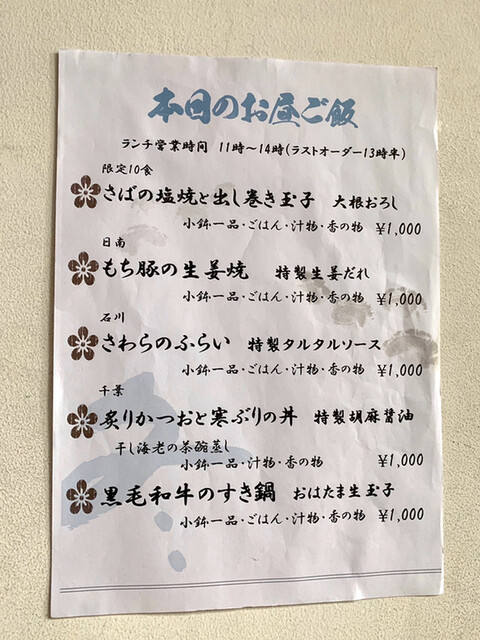 本日のお昼ご飯
ランチ営業時間 11時～14時(ラストオーダー13時半)
限定10食
さばの塩焼と出し巻き玉子 大根おろし
小鉢一品・ごはん・汁物・香の物 ¥1,000
日南
もち豚の生姜焼 特製生姜だれ
小鉢一品・ごはん・汁物・香の物 ¥1,000
石川
さわらのふらい 特製タルタルソース
小鉢一品・ごはん・汁物・香の物 ¥1,000
千葉
炙りかつおと寒ぶりの丼 特製胡麻醤油
干し海老の茶碗蒸し
小鉢一品・汁物・香の物 ¥1,000
黒毛和牛のすき鍋 おはたま生玉子
小鉢一品・ごはん・汁物・香の物 ¥1,000